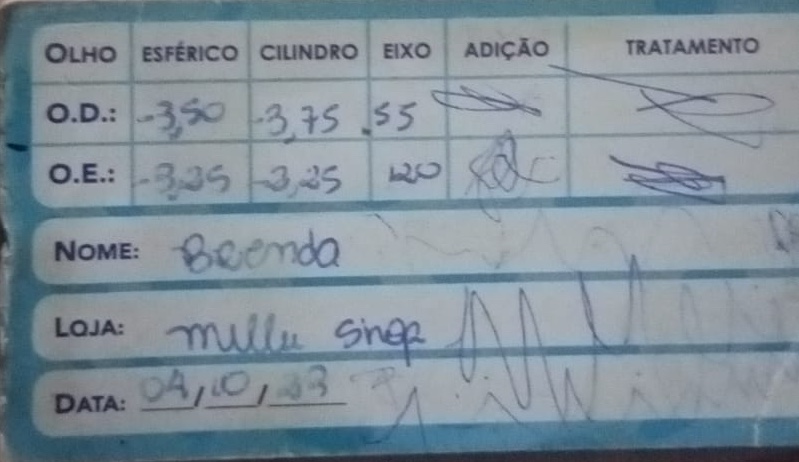 OLHO ESFÉRICO CILINDRO EIXO ADIÇÃO TRATAMENTO
O.D.: -3,50 -3,75 .55
O.E.: -3,25 -3,25 120
NOME: Brenda
LOJA: millu sinop
DATA: 04/10/23